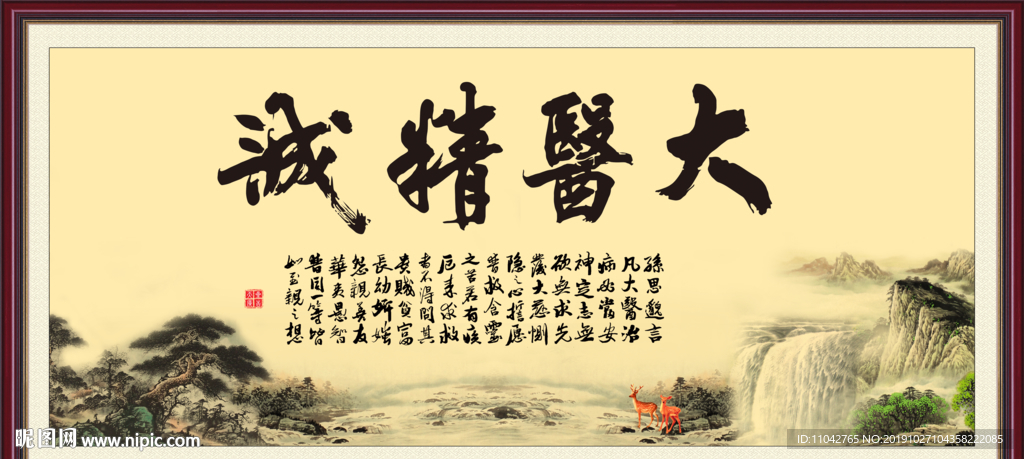 大醫精誠
孫思邈言
凡大醫治
病必當安
神定志無
欲無求先
發大慈惻
隱之心誓愿
普救含靈
之苦若有疾
厄來求救
者不得問其
貴賤貧富
長幼妍媸
怨親善友
華夷愚智
普同一等皆
如至親之想
昵图网 www.nipic.com
ID:11042765 NO:20191027104358222085